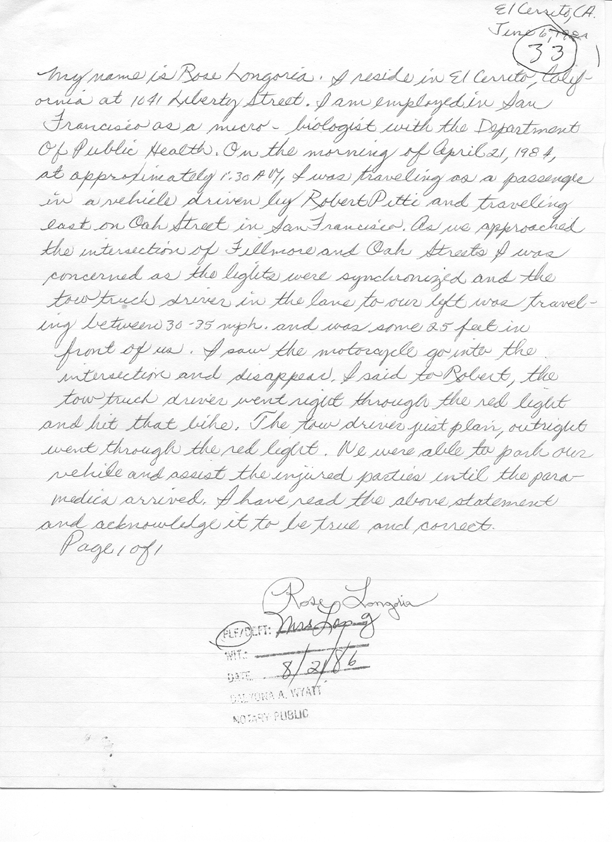 El Cerrito, CA.
June 6, 1984
33
My name is Rose Longoria. I reside in El Cerrito, Calif-
ornia at 1041 Liberty Street. I am employed in San
Francisco as a micro-biologist with the Department
Of Public Health. On the morning of April 21, 1984,
at approximately 1:30 AM, I was traveling as a passenger
in a vehicle driven by Robert Pitti and traveling
east on Oak Street in San Francisco. As we approached
the intersection of Fillmore and Oak Streets I was
concerned as the lights were synchronized and the
tow truck driver in the lane to our left was travel-
ing between 30-35 mph. and was some 25 feet in
front of us. I saw the motorcycle go into the
intersection and disappear. I said to Robert, the
tow truck driver went right through the red light
and hit that bike. The tow driver just plan, outright
went through the red light. We were able to park our
vehile and assist the injured parties until the para-
medics arrived. I have read the above statement
and acknowledge it to be true and correct.
Page 1 of 1
Rose Longoria
PLF/DEFT:
WIT.:
DATE 8/21/86
A. WYATT
NOTARY PUBLIC